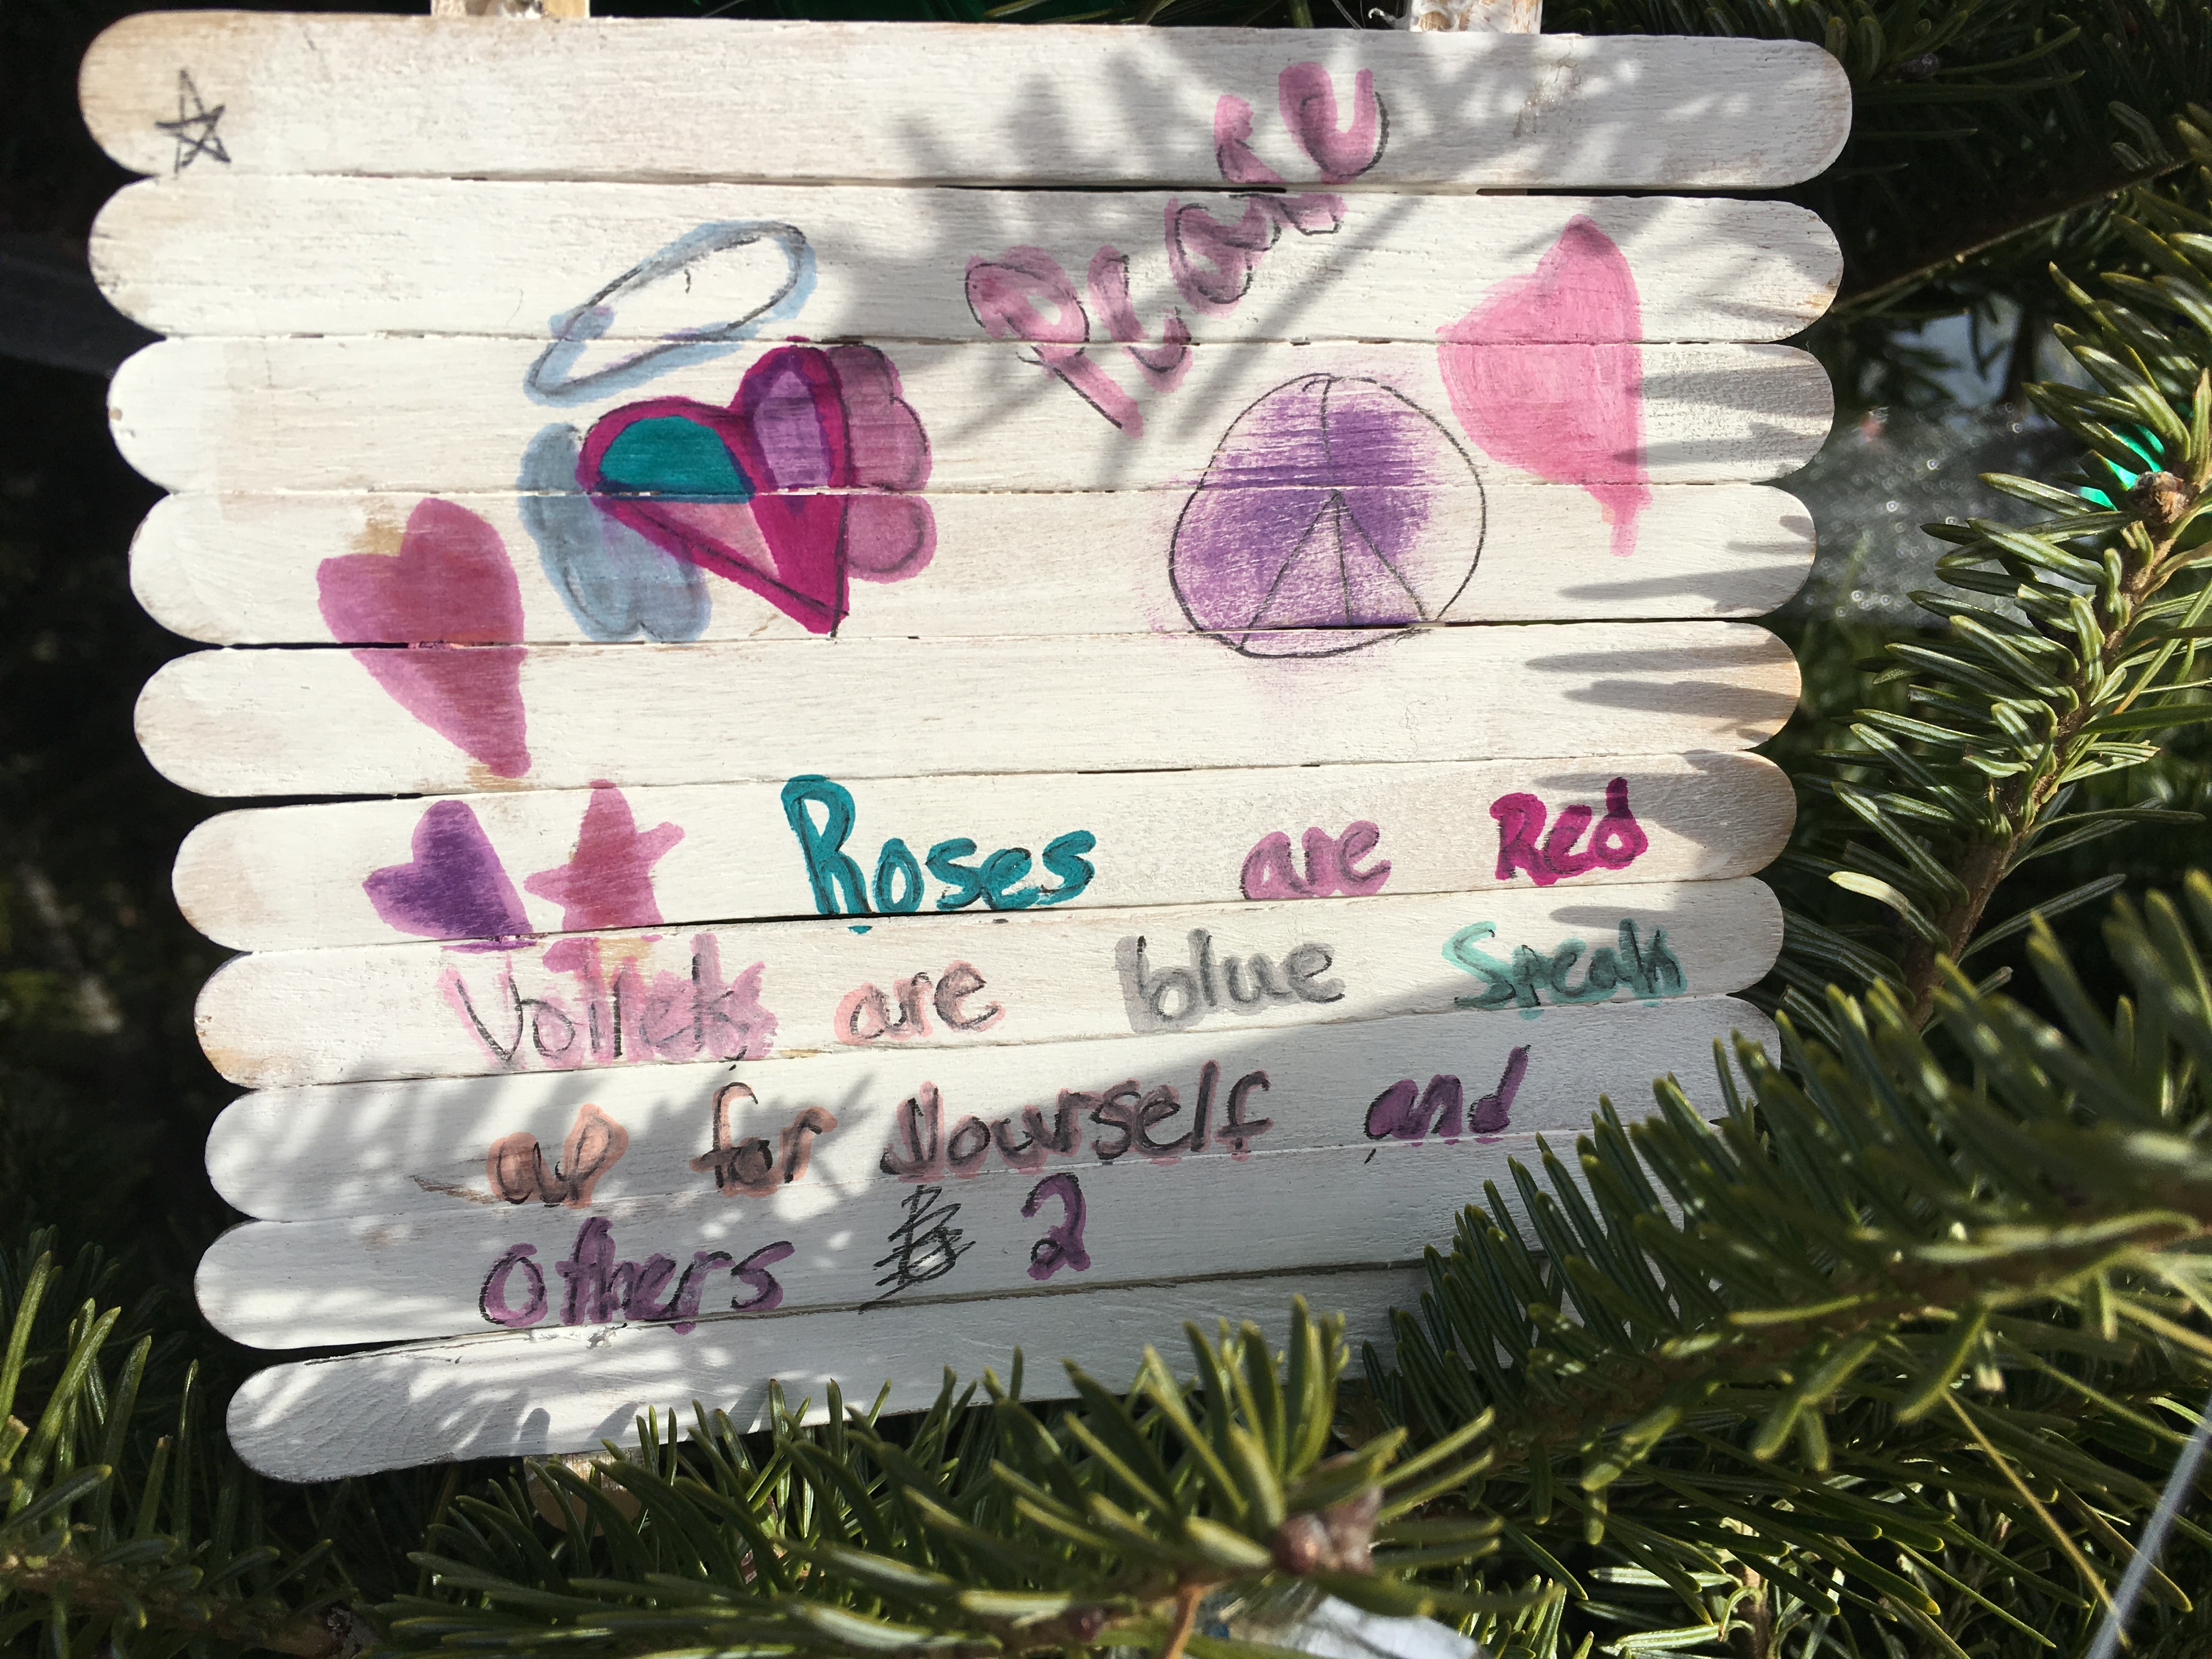 Peace
Roses are Red
Voilets are blue Speak
up for Yourself and
Others 2